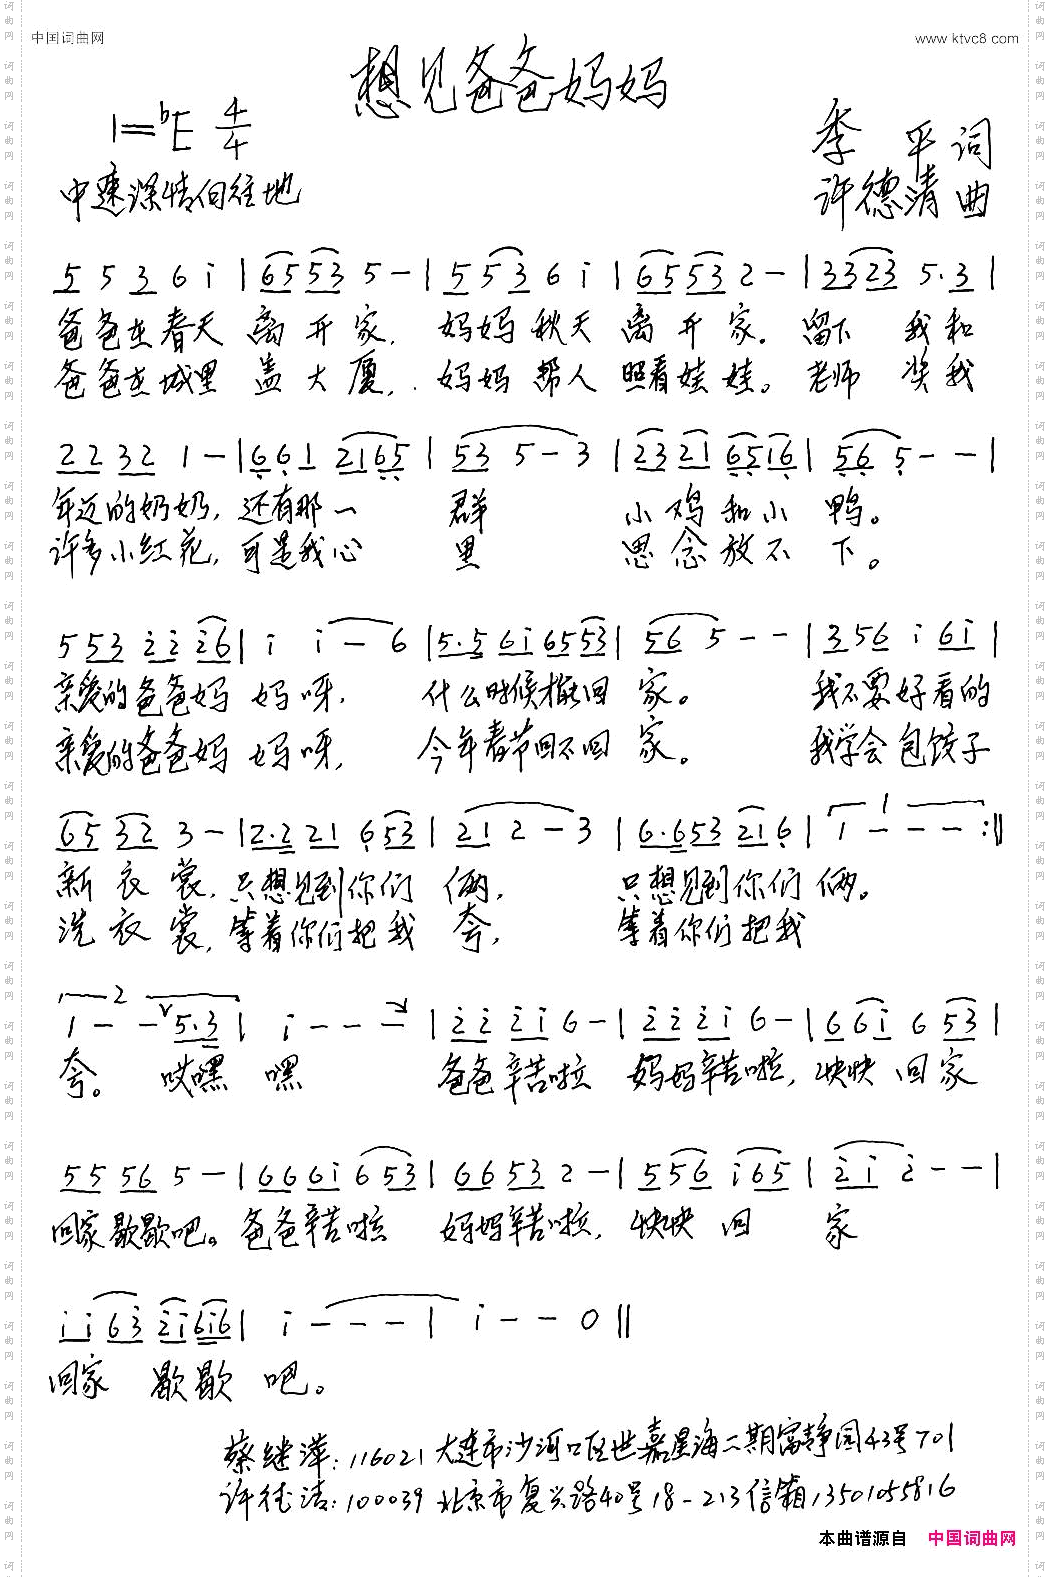 中国词曲网
www.ktvc8.com
想见爸爸妈妈
1=♭E 4/4
季 平 词
中速深情向往地
许德清 曲
5 5 3 6 i | 6 5 5 3 5 - | 5 5 3 6 i | 6 5 5 3 2 - | 3 3 2 3 5·3 |
爸爸在春天 离 开 家, 妈妈 秋天 离 开 家。留下 我和
爸爸在城里 盖 大 厦, 妈妈 帮人 照看娃 娃。老师 奖我
2 2 3 2 1 - | 6 6 1 2 1 6 5 | 5 3 5 - 3 | 2 3 2 1 6 5 1 6 | 5 6 5 - - |
年迈的奶奶, 还有那一 群 小鸡和小 鸭。
许多小红花, 可是我心 里 思念放不 下。
5 5 3 i i i 6 | i i - 6 | 5·5 6 i 6 5 5 3 | 5 6 5 - - | 3 5 6 i 6 i |
亲爱的爸爸妈 妈呀, 什么时候才能回 家。 我不要好看的
亲爱的爸爸妈 妈呀, 今年春节回不回 家。 我学会包饺子
6 5 3 2 3 - | 2·2 2 1 6 5 3 | 2 1 2 - 3 | 6·6 5 3 2 1 6 | 1 - - - :||
新衣裳, 只想见到你们 俩, 只想见到你们 俩。
洗衣裳, 等着你们把我 夸, 等着你们把我
1 - - 5·3 | i - - - | 2 2 2 i 6 - | 2 2 2 i 6 - | 6 6 i 6 5 3 |
夸。 哎嘿 嘿 爸爸辛苦啦 妈妈辛苦啦, 快快 回家
5 5 5 6 5 - | 6 6 6 i 6 5 3 | 6 6 5 3 2 - | 5 5 6 i 6 5 | 2 i 2 - - |
回家歇歇吧。爸爸辛苦啦 妈妈辛苦啦, 快快 回 家
i i 6 3 2 i 6 i 6 | i - - - | i - - 0 ||
回家 歇歇 吧。
蔡继萍:116021大连市沙河口区世嘉星海二期富静园43号701
许德清:100039北京市复兴路40号18-213信箱13501055816
本曲谱源自 中国词曲网